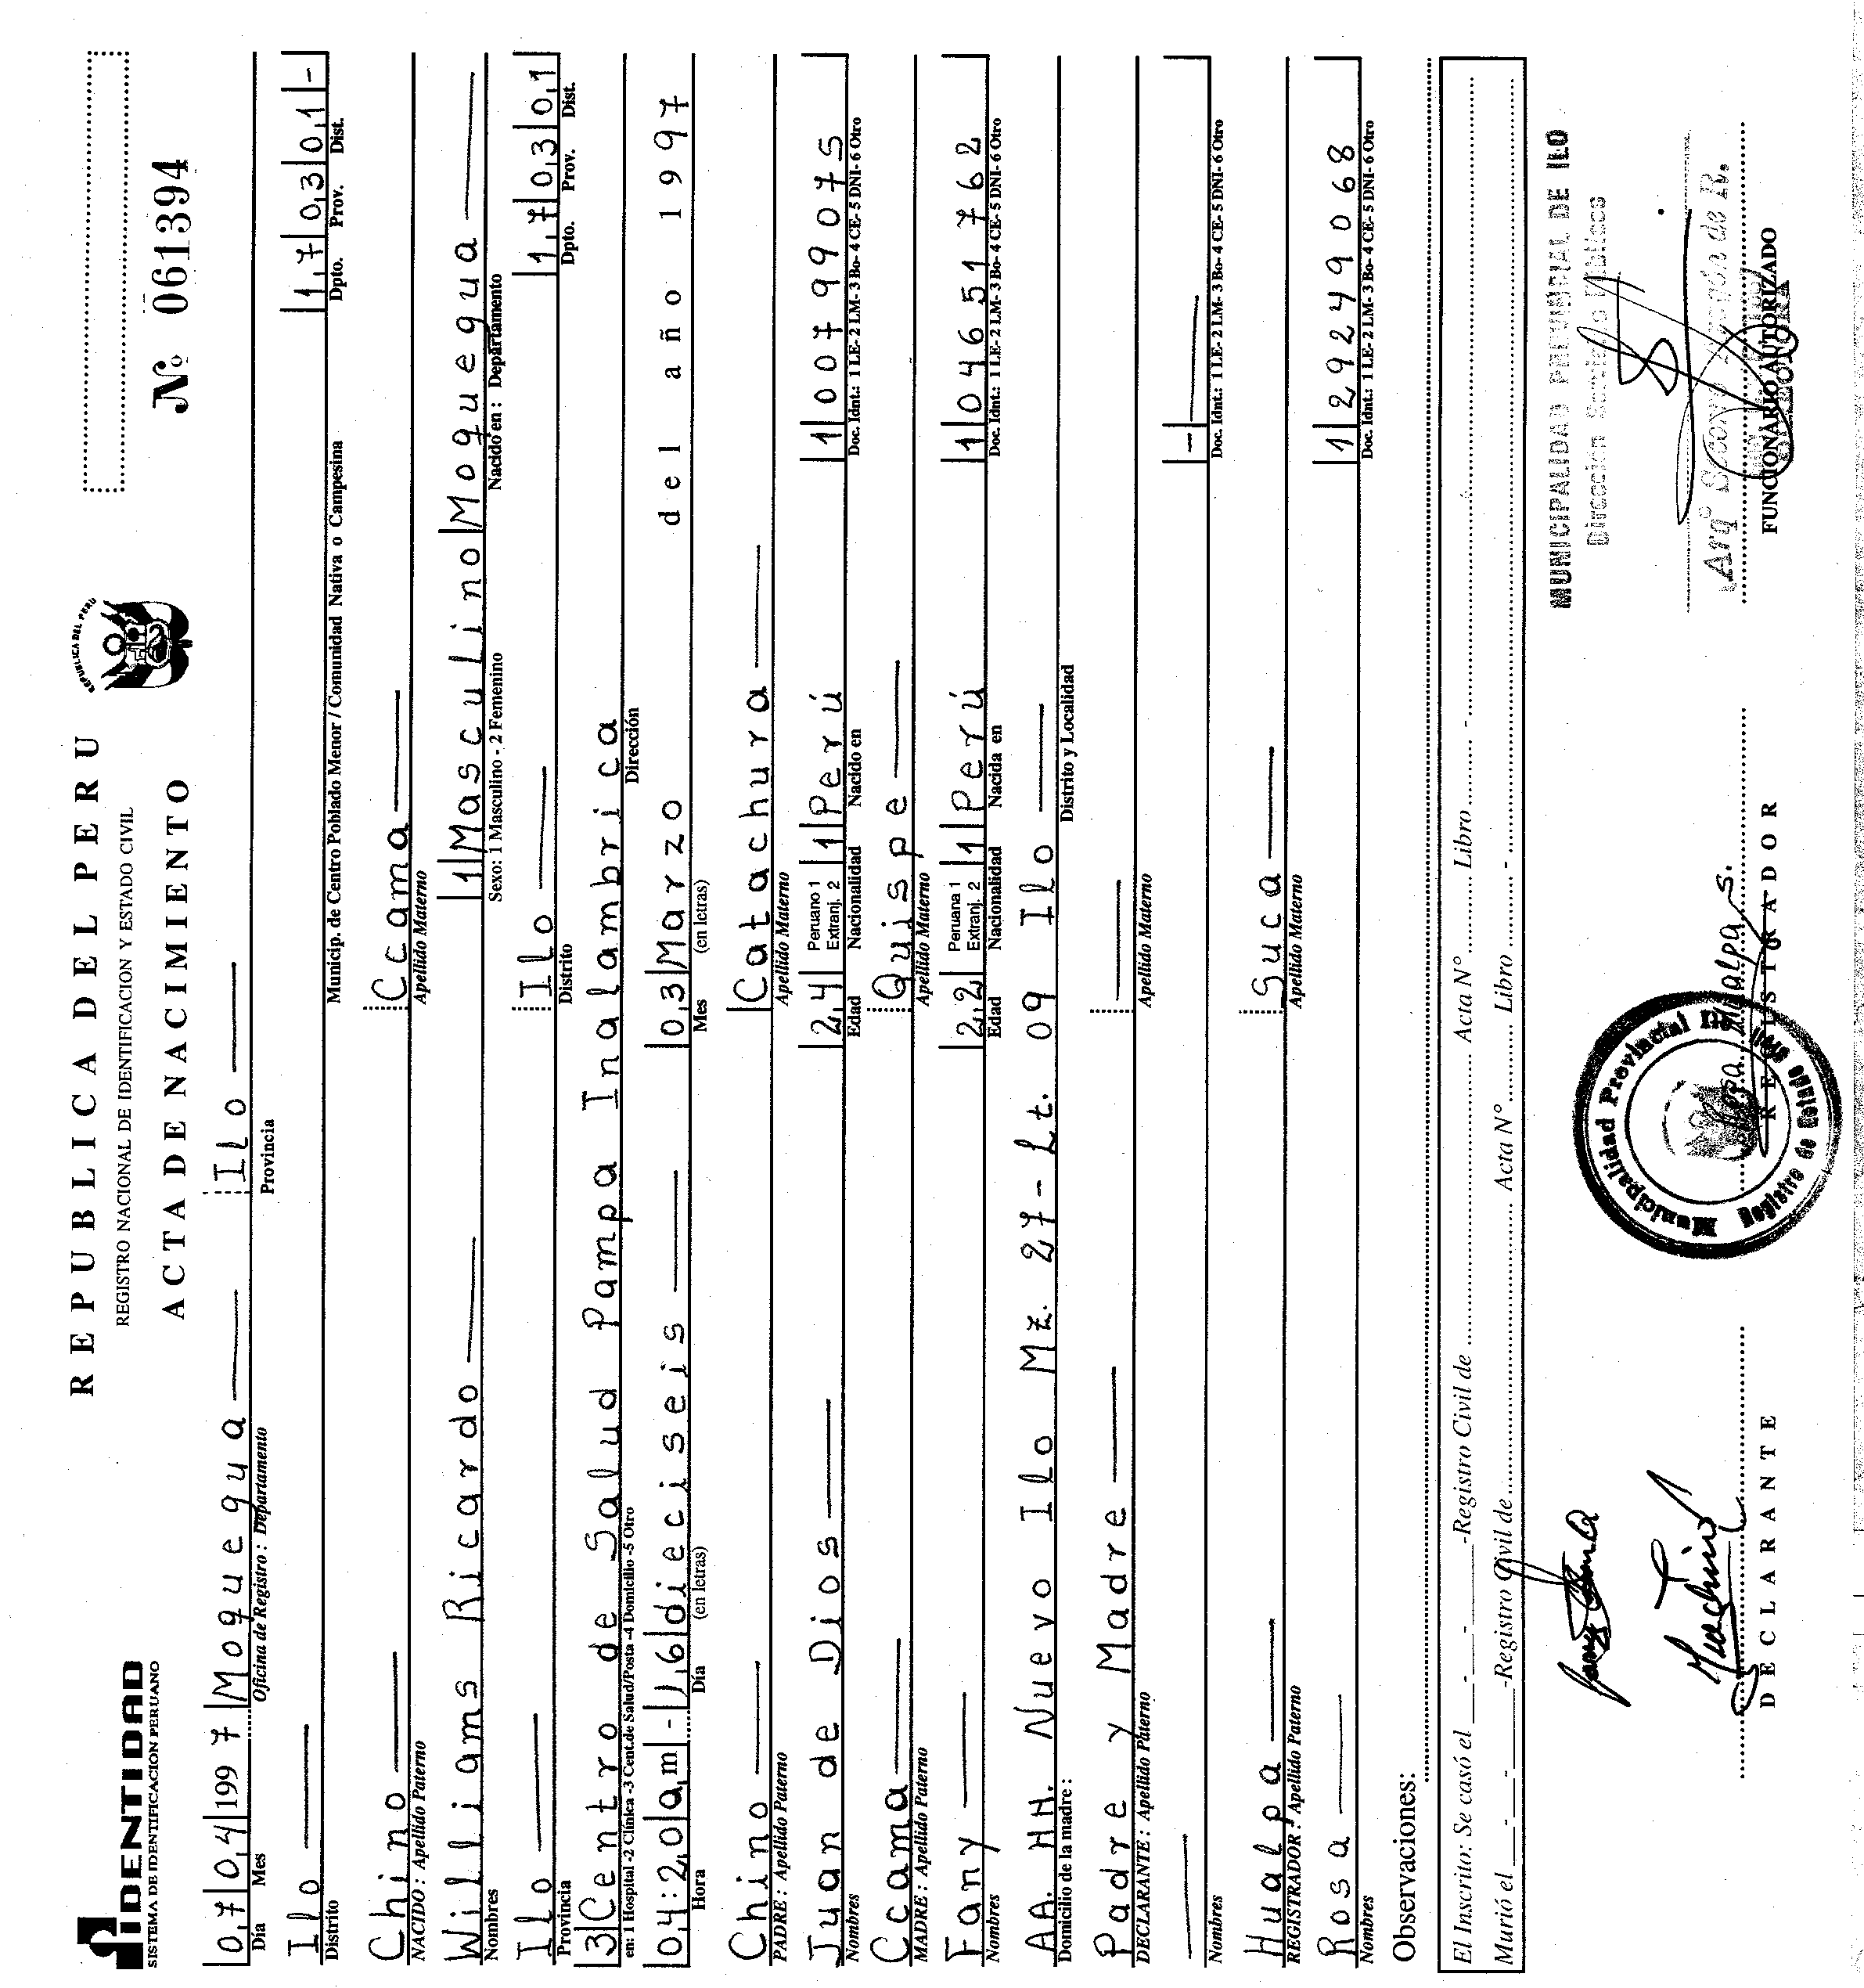 IDENTIDAD
SISTEMA DE IDENTIFICACION PERUANO
REPUBLICA DEL PERU
REGISTRO NACIONAL DE IDENTIFICACION Y ESTADO CIVIL
ACTA DE NACIMIENTO
REPUBLICA DEL PERU
Nº 061394
07 04 1997 Moquegua Ilo
Día Mes Oficina de Registro: Departamento Provincia
Ilo 17 03 01 -
Distrito Municip. de Centro Poblado Menor / Comunidad Nativa o Campesina Dpto. Prov. Dist.
Chino Ccama
NACIDO: Apellido Paterno Apellido Materno
Williams Ricardo 1 Masculino Moquegua
Nombres Sexo: 1 Masculino - 2 Femenino Nacido en: Departamento
Ilo Ilo 17 03 01
Provincia Distrito Dpto. Prov. Dist.
3 Centro de Salud Pampa Inalambrica
en: 1 Hospital -2 Clínica -3 Cent.de Salud/Posta -4 Domicilio -5 Otro Dirección
04:20am - 16 dieciseis 03 Marzo del año 1997
Hora Día (en letras) Mes (en letras)
Chino Catachura
PADRE: Apellido Paterno Apellido Materno
Juan de Dios 24 Peruano 1 Extranj. 2 1 Perú 1 00799075
Nombres Edad Nacionalidad Nacido en Doc. Idnt.: 1 LE- 2 LM- 3 Bo- 4 CE- 5 DNI- 6 Otro
Ccama Quispe
MADRE: Apellido Paterno Apellido Materno
Fany 22 Peruana 1 Extranj. 2 1 Perú 1 04651762
Nombres Edad Nacionalidad Nacida en Doc. Idnt.: 1 LE- 2 LM- 3 Bo- 4 CE- 5 DNI- 6 Otro
AA. HH. Nuevo Ilo Mz. 27- Lt. 09 Ilo
Domicilio de la madre: Distrito y Localidad
Padre y Madre
DECLARANTE: Apellido Paterno Apellido Materno
-
Nombres Doc. Idnt.: 1 LE- 2 LM- 3 Bo- 4 CE- 5 DNI- 6 Otro
Hualpa Suca
REGISTRADOR: Apellido Paterno Apellido Materno
Rosa 1 29249068
Nombres Doc. Idnt.: 1 LE- 2 LM- 3 Bo- 4 CE- 5 DNI- 6 Otro
Observaciones:
El Inscrito: Se casó el - - -Registro Civil de Acta N° Libro -
Murió el - - -Registro Civil de Acta N° Libro -
MUNICIPALIDAD PROVINCIAL DE ILO
Municipalidad Provincial Ilo
Registro de Estado Civil
Rosa Hualpa S.
DECLARANTE
REGISTRADOR
FUNCIONARIO AUTORIZADO